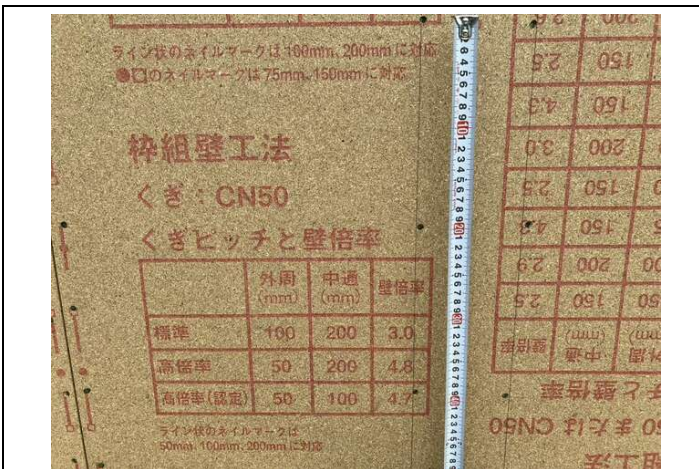 ライン状のネイルマークは100mm、200mmに対応
●□のネイルマークは75mm、150mmに対応
枠組壁工法
くぎ：CN50
くぎピッチと壁倍率
外周(mm) 中通(mm) 壁倍率
標準 100 200 3.0
高倍率 50 200 4.8
高倍率(認定) 50 100 4.7
ライン状のネイルマークは
50mm、100mm、200mmに対応
200
150 2.5
150 4.3
200 3.0
150 2.5
150
200 2.9
150 2.5
中通(mm) 壁倍率
チと壁倍率
または CN50
組工法